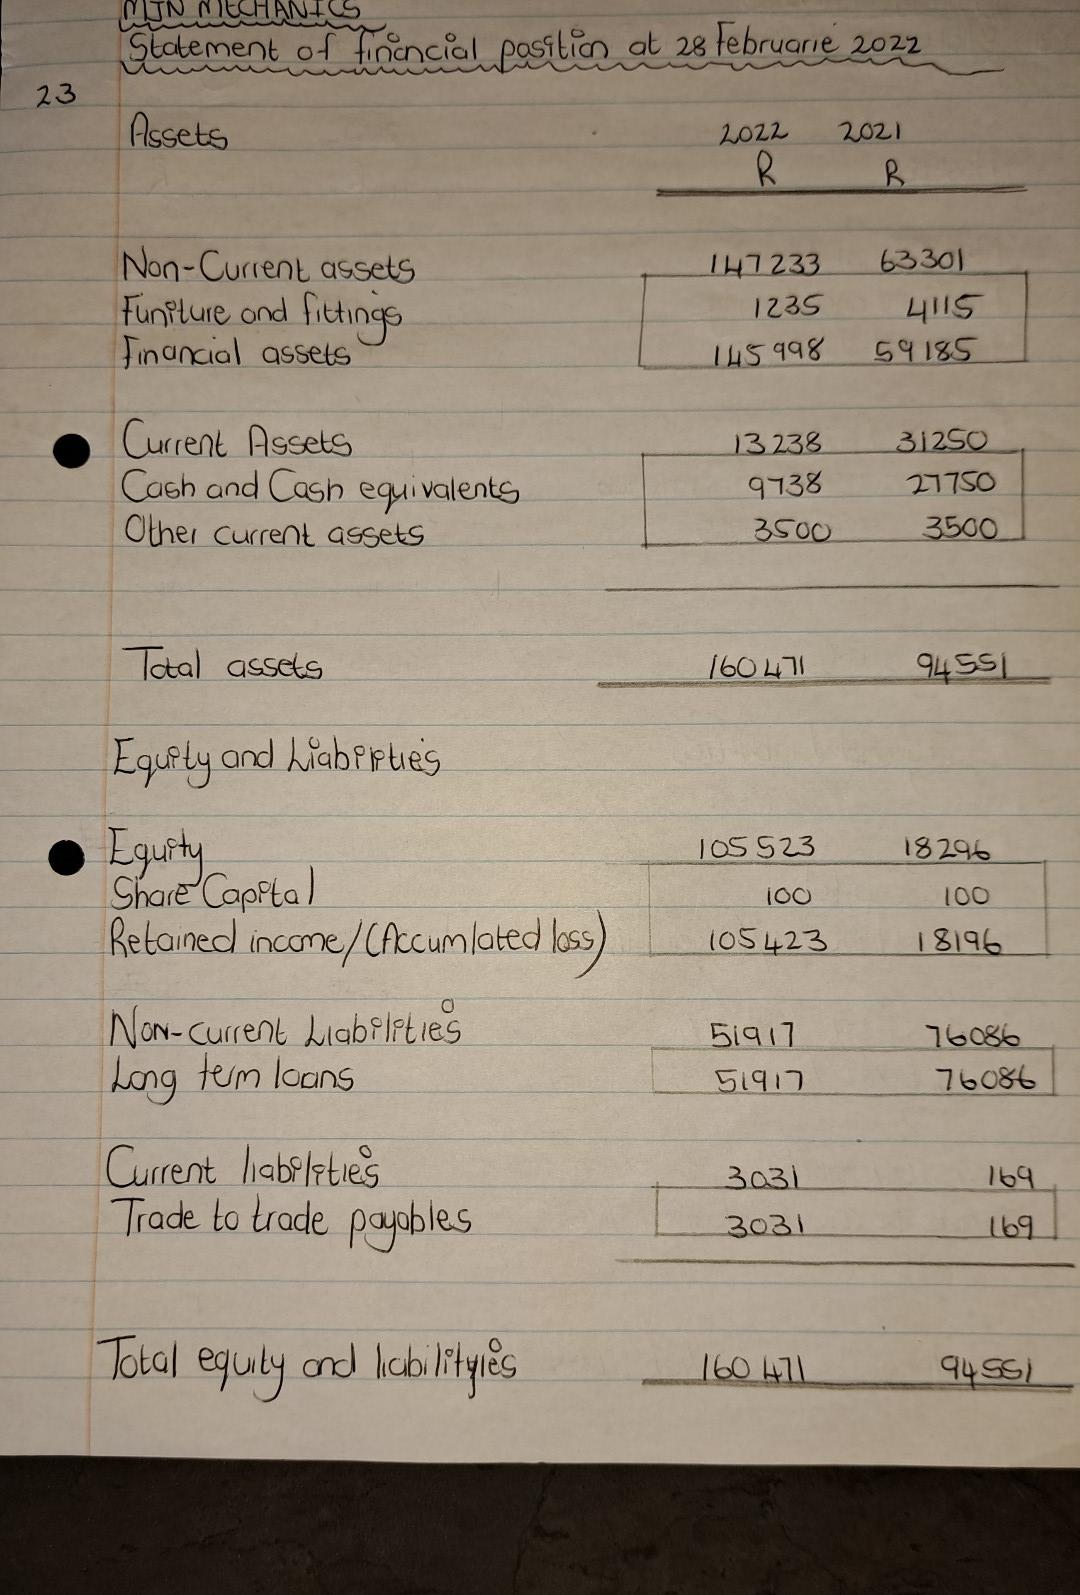 MJN MECHANICS
Statement of financial position at 28 Februarie 2022
23
Assets 2022 2021
R R
Non-Current assets 147233 63301
Funiture and fittings 1235 4115
Financial assets 145998 59185
Current Assets 13238 31250
Cash and Cash equivalents 9738 27750
Other current assets 3500 3500
Total assets 160471 94551
Equity and Liabilities
Equity 105523 18296
Share Capital 100 100
Retained income/(Accumlated loss) 105423 18196
Non-current Liabilities 51917 76086
Long term loans 51917 76086
Current liabilities 3031 169
Trade to trade payables 3031 169
Total equity and liabilityies 160471 94551